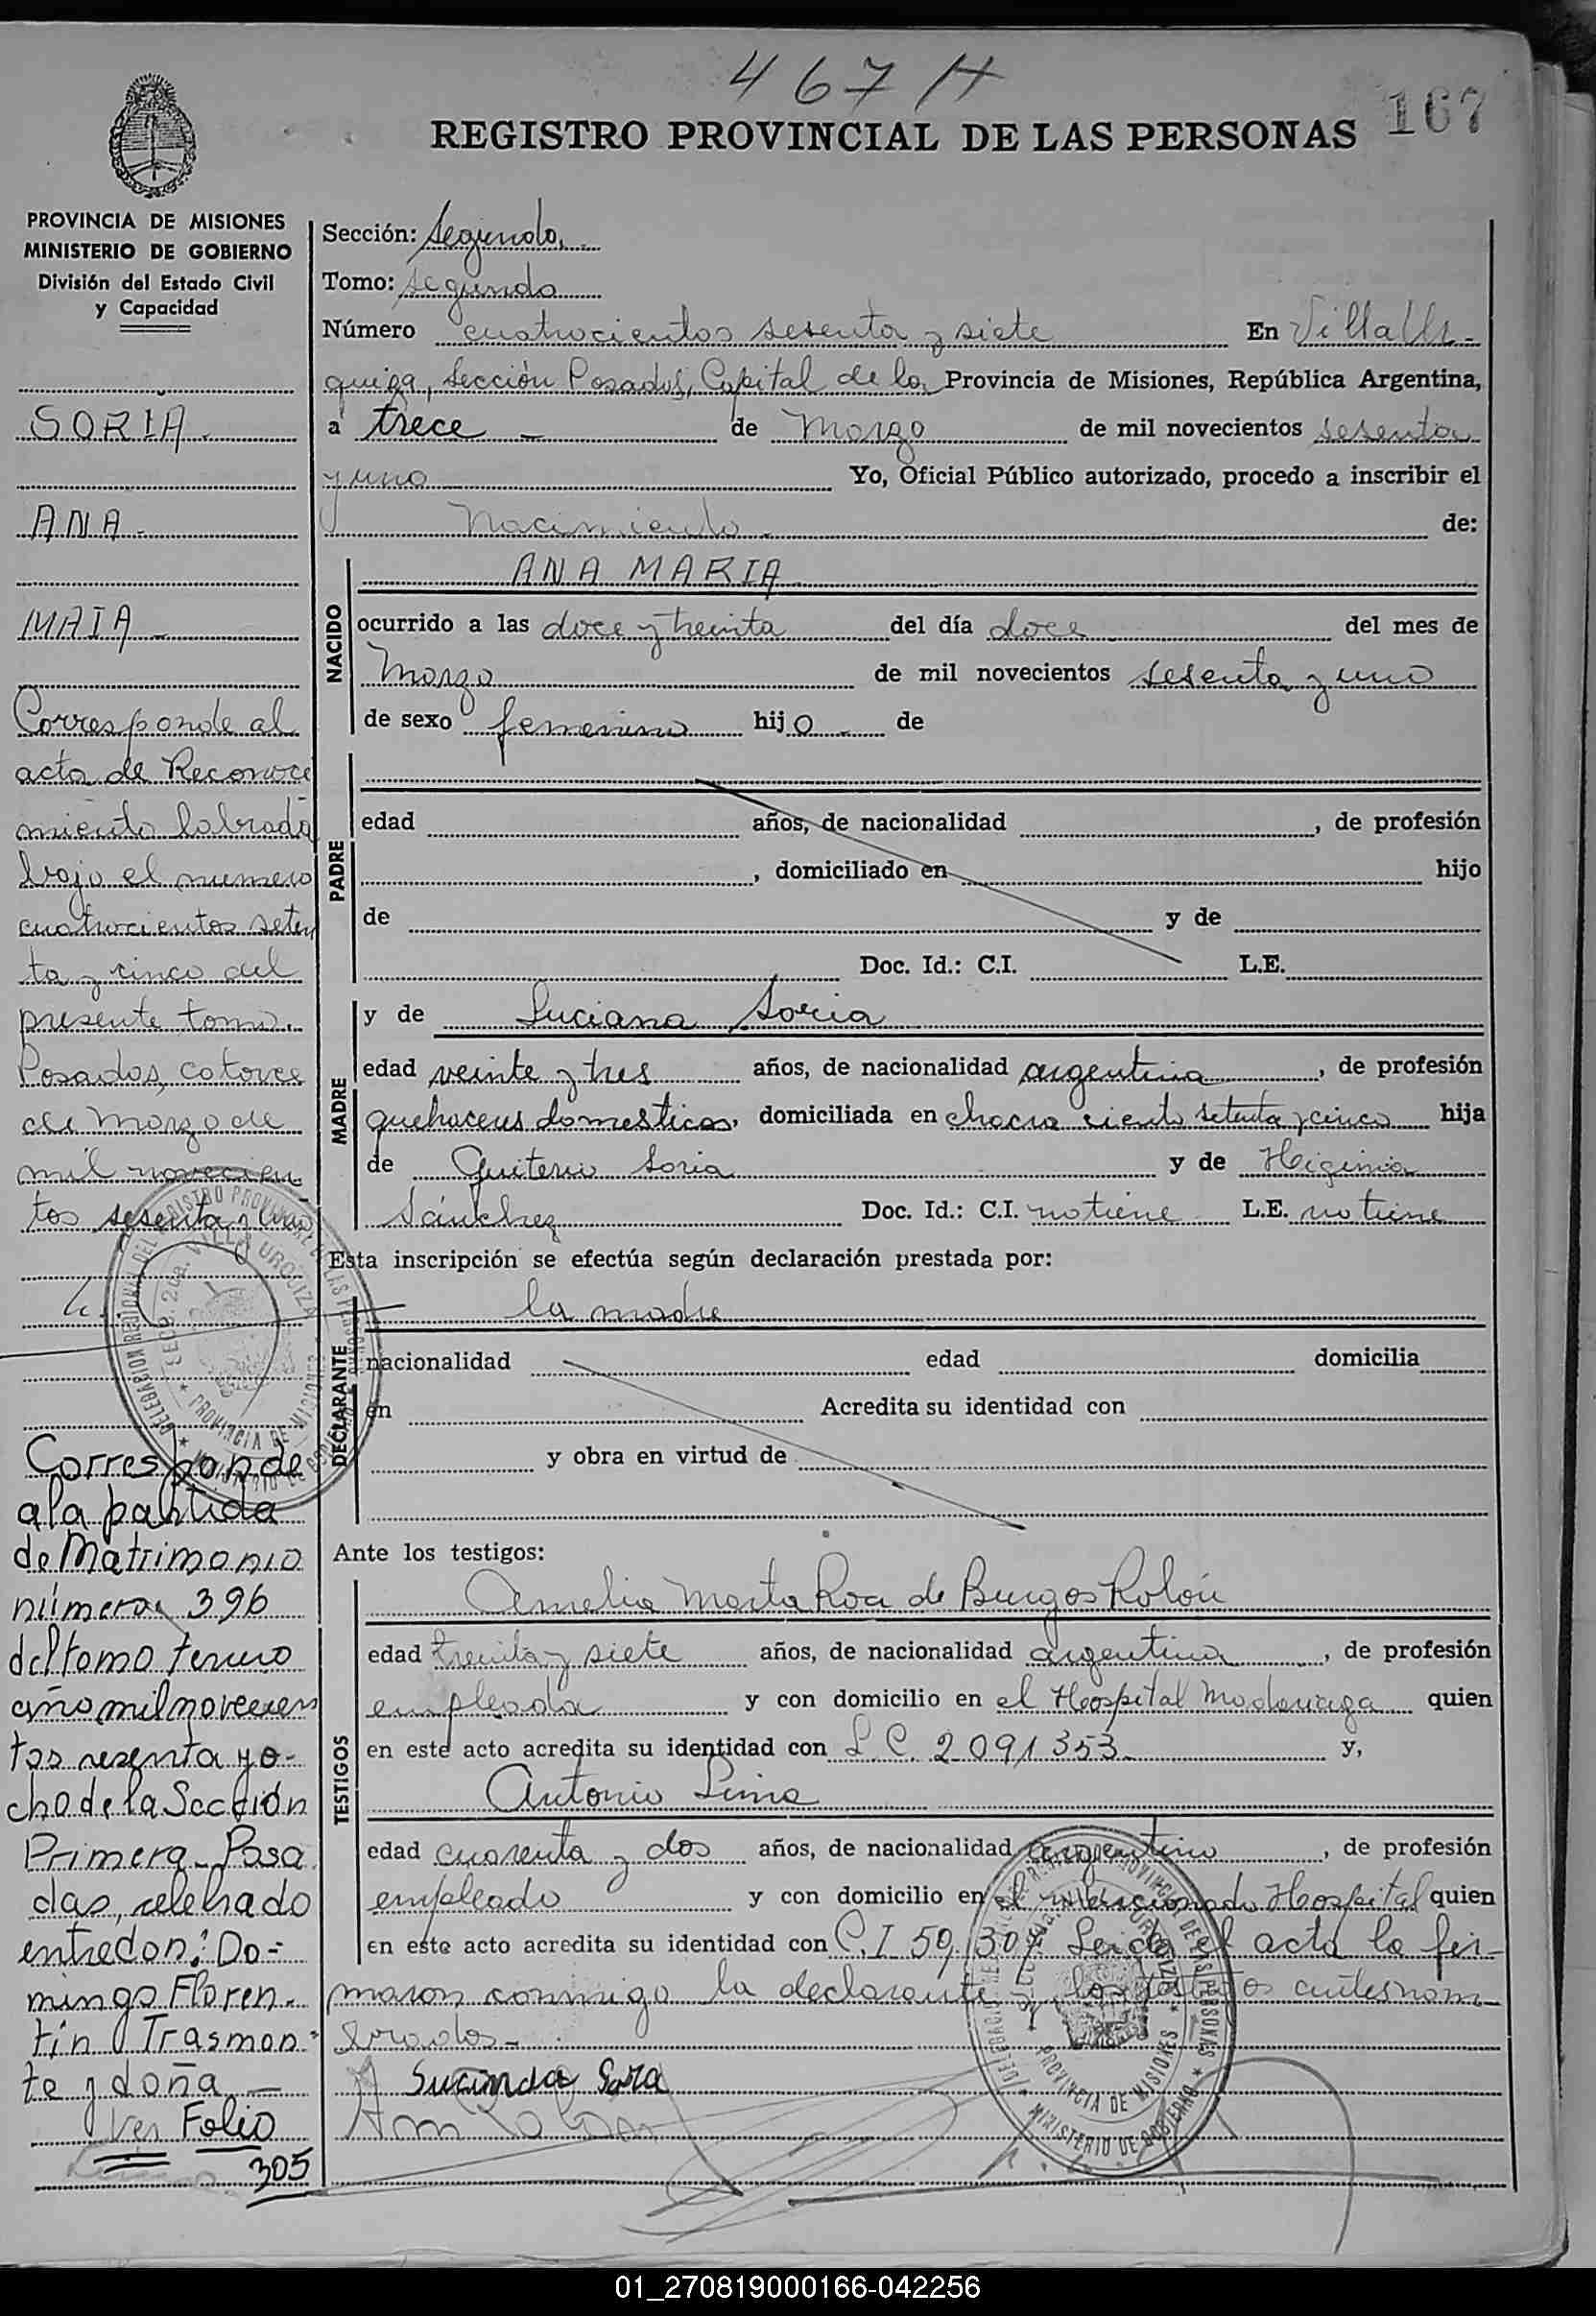 467 H
167
REGISTRO PROVINCIAL DE LAS PERSONAS
PROVINCIA DE MISIONES
MINISTERIO DE GOBIERNO
División del Estado Civil
y Capacidad
SORIA.
ANA.
MAIA
Corresponde al
acta de Reconoci
miento labrada
bajo el numero
cuatrocientos seten
ta y cinco del
presente tomo.
Posadas, catorce
de Marzo de
mil novecien
tos sesenta y uno
Corresponde
a la partida
de Matrimonio
número 396
del tomo tercero
año mil novecien
tos sesenta y o-
cho de la Sección
Primera - Posa
das, celebrado
entre don: Do-
mingo Floren-
tín Trasmon-
te y doña
Ver Folio
305
Sección: Segunda.
Tomo: segundo
Número cuatrocientos sesenta y siete En Villa Ur-
quiza, Sección Posadas, Capital de la Provincia de Misiones, República Argentina,
a trece de Marzo de mil novecientos sesenta
y uno Yo, Oficial Público autorizado, procedo a inscribir el
Nacimiento de:
NACIDO
ANA MARIA
ocurrido a las doce y treinta del día doce del mes de
Marzo de mil novecientos sesenta y uno
de sexo femenino hija de
PADRE
edad años, de nacionalidad , de profesión
, domiciliado en hijo
de y de
Doc. Id.: C.I. L.E.
MADRE
y de Luciana Soria
edad veinte y tres años, de nacionalidad argentina, de profesión
quehaceres domesticos, domiciliada en chacra ciento setenta y cinco hija
de Quiterio Soria y de Higinia
Sánchez Doc. Id.: C.I. no tiene L.E. no tiene
Esta inscripción se efectúa según declaración prestada por:
DECLARANTE
la madre
nacionalidad edad domicilia
en Acredita su identidad con
y obra en virtud de
Ante los testigos:
TESTIGOS
Amelia Marta Roa de Burgos Rolón
edad treinta y siete años, de nacionalidad argentina, de profesión
empleada y con domicilio en el Hospital Madariaga quien
en este acto acredita su identidad con L.C. 2091353 y,
Antonio Lima
edad cuarenta y dos años, de nacionalidad argentino, de profesión
empleado y con domicilio en el mencionado Hospital quien
en este acto acredita su identidad con C.I 59.307 Leida el acta la fir-
maron conmigo la declarante y los testigos antesnom
brados.
01_270819000166-042256